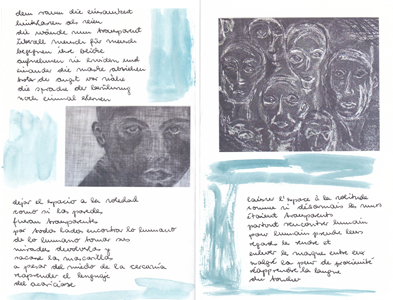 dem raum die einsamkeit
als seien
die wände nun transparent
überall mensch für mensch
begegnen ihre blicke
aufnehmen sie und
einander die maske abziehen
trotz der angst vor nähe
die sprache der berührung
noch einmal lernen
dejar el espacio a la soledad
como si las paredes
fueran transparentes
por todos lados encontrar lo humano
de lo humano tomar sus
miradas devolverlas y
sacarse la mascarilla
a pesar del miedo de la cercanía
reaprender el lenguaje
del acariciarse
laisser l'espace à la solitude
comme si désormais les murs
étaient transparents
partout rencontre humain
pour humain prendre leurs
regards les rendre et
enlever le masque entre eux
malgré la peur de proximité
réapprendre la langue
du toucher